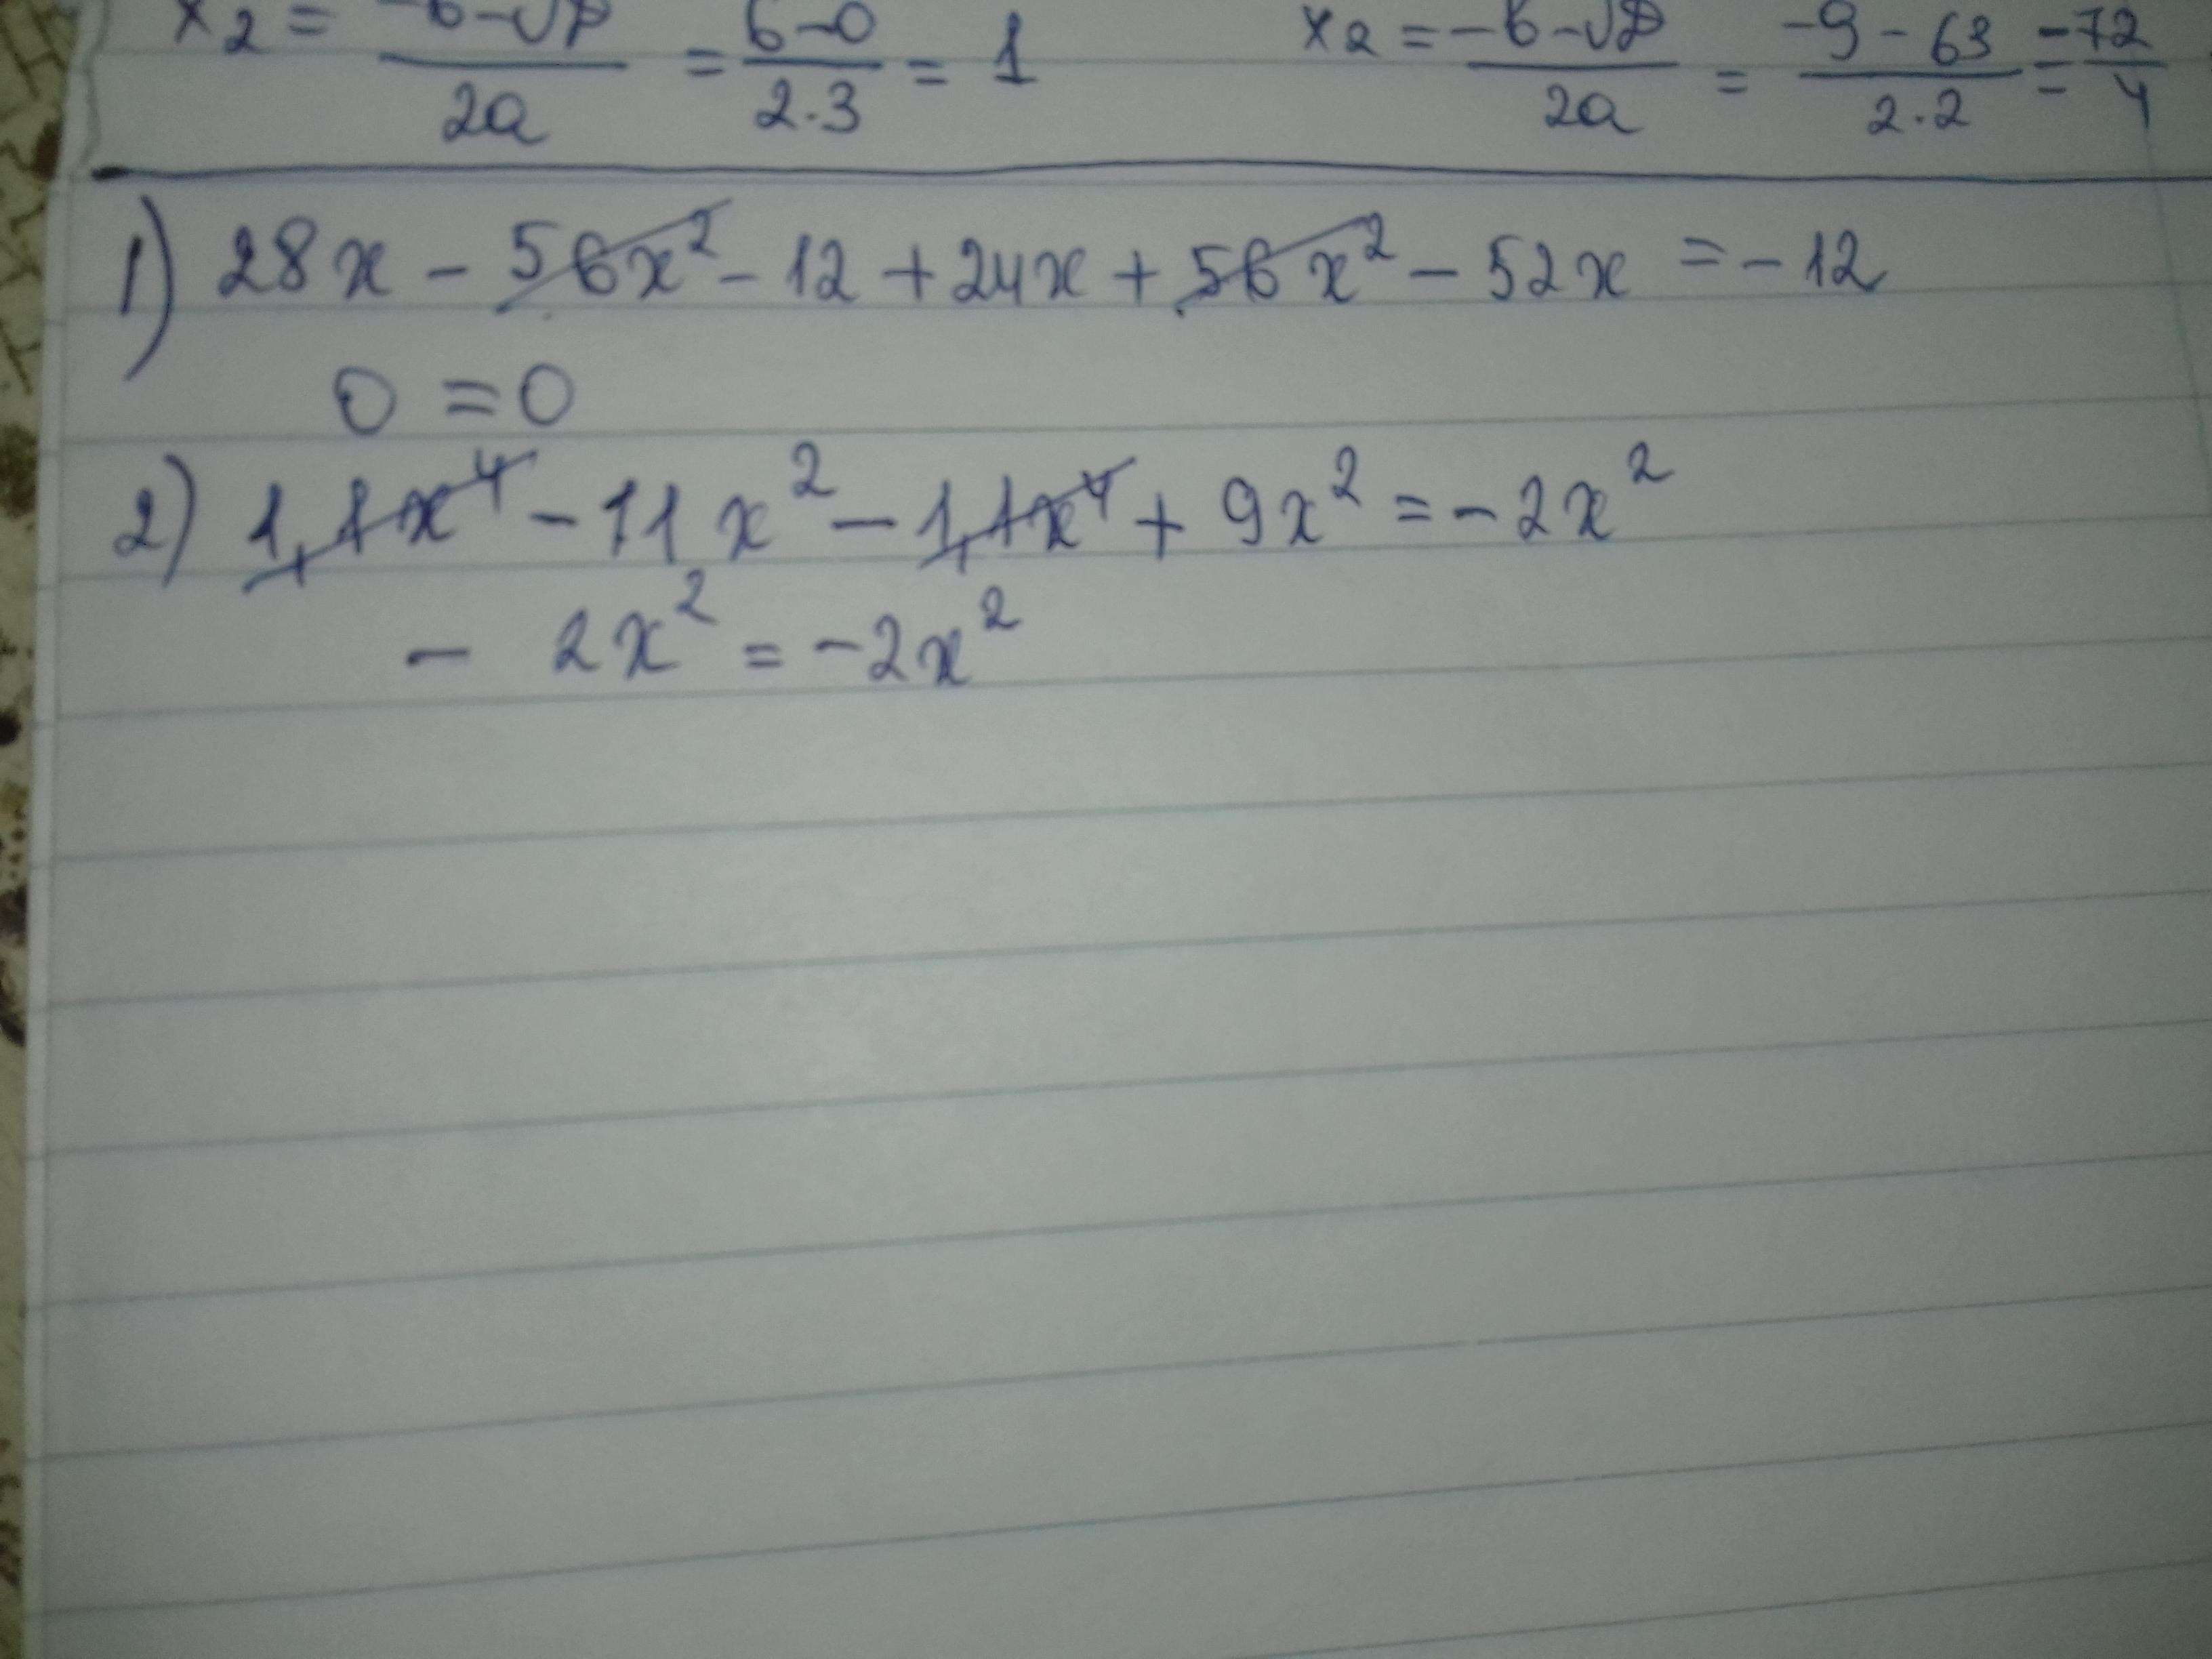 x₂ = -b-√D/2a = 6-0/2·3 = 1
x₂ = -b-√D/2a = -9-63/2·2 = -72/4
1) 28x - 56x² - 12 + 24x + 56x² - 52x = -12
0 = 0
2) 1,1x⁴ - 11x² - 1,1x⁴ + 9x² = -2x²
- 2x² = -2x²